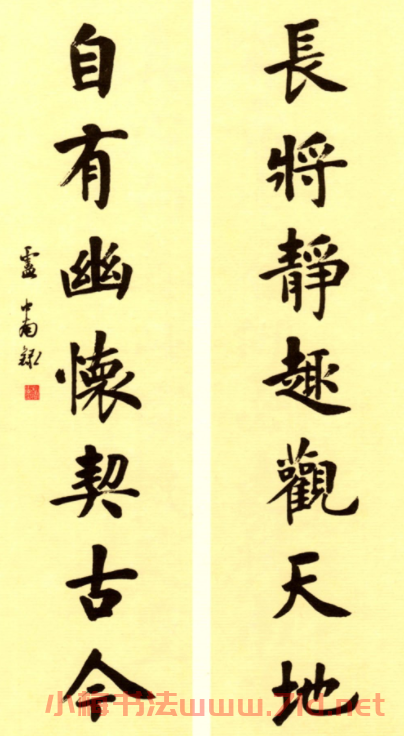 長將靜趣觀天地
自有幽懷契古今
小梅书法www.7ld.net